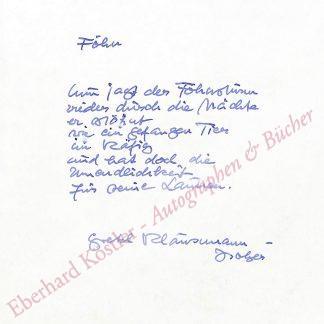 Föhn
Nun jagt der Föhnsturm
wider durch die Nächte
er stöhnt
wie ein gefangen Tier
im Käfig
und hat doch die
Unendlichkeit
für seine Launen.
Gretel Klausmann -
Eberhard Köstler - Autographen & Bücher